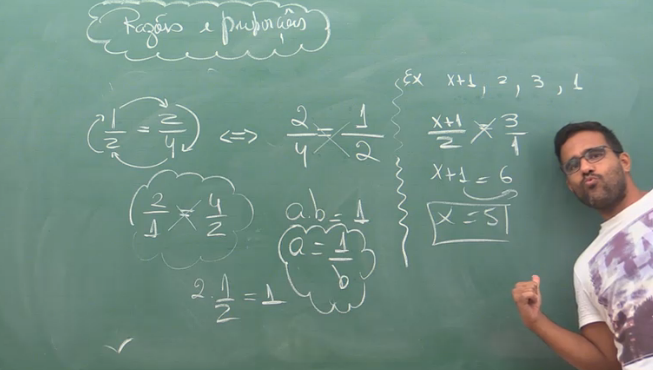 Razões e proporções
1/2 = 2/4 <=> 2/4 = 1/2
2/1 = 4/2
a.b = 1
a = 1/b
2. 1/2 = 1
Ex x+1, 2, 3, 1
x+1/2 = 3/1
x+1 = 6
x = 5